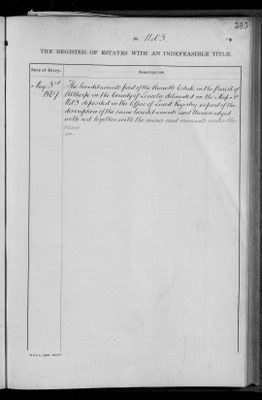 385
No. 1103
THE REGISTER OF ESTATES WITH AN INDEFEASIBLE TITLE.
Date of Entry. Description.
May 3rd The hereditaments part of the Estate in the Parish of
Althorpe in the County of Lincoln delineated on the Map No.
1103 deposited in the Office of Land Registry as part of the
description of the same hereditaments and thereon edged
with red together with the mines and minerals under the
same